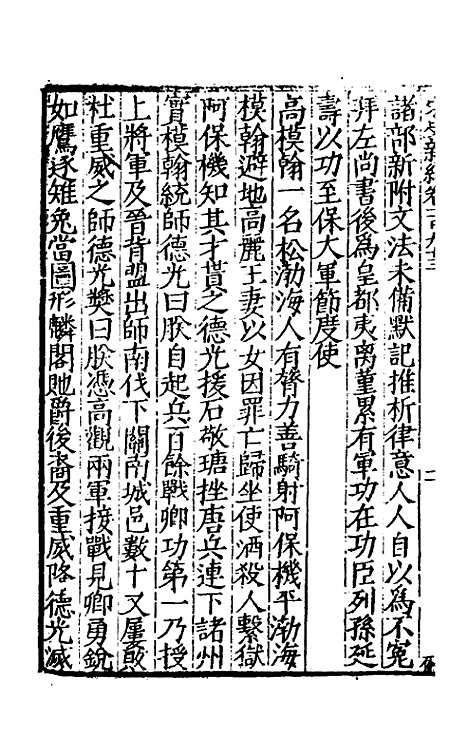 宋史新編卷一百九十三
二
諸部新附文法未備默記推析律意人人自以為不冤
拜左尚書後為皇都夷离董累有軍功在功臣列孫延
壽以功至保大軍節度使
高模翰一名松渤海人有膂力善騎射阿保機平渤海
模翰避地高麗王妻以女因罪亡歸坐使酒殺人繫獄
阿保機知其才貰之德光援石敬瑭挫唐兵連下諸州
實模翰統師德光曰朕自起兵百餘戰卿功第一乃授
上將軍及晉背盟出師南伐下關南城邑數十又屢敗
杜重威之師德光獎曰朕憑高觀兩軍接戰見卿勇銳
如鷹逐雉兔當圖形麟閣貤爵後裔及重威降德光滅